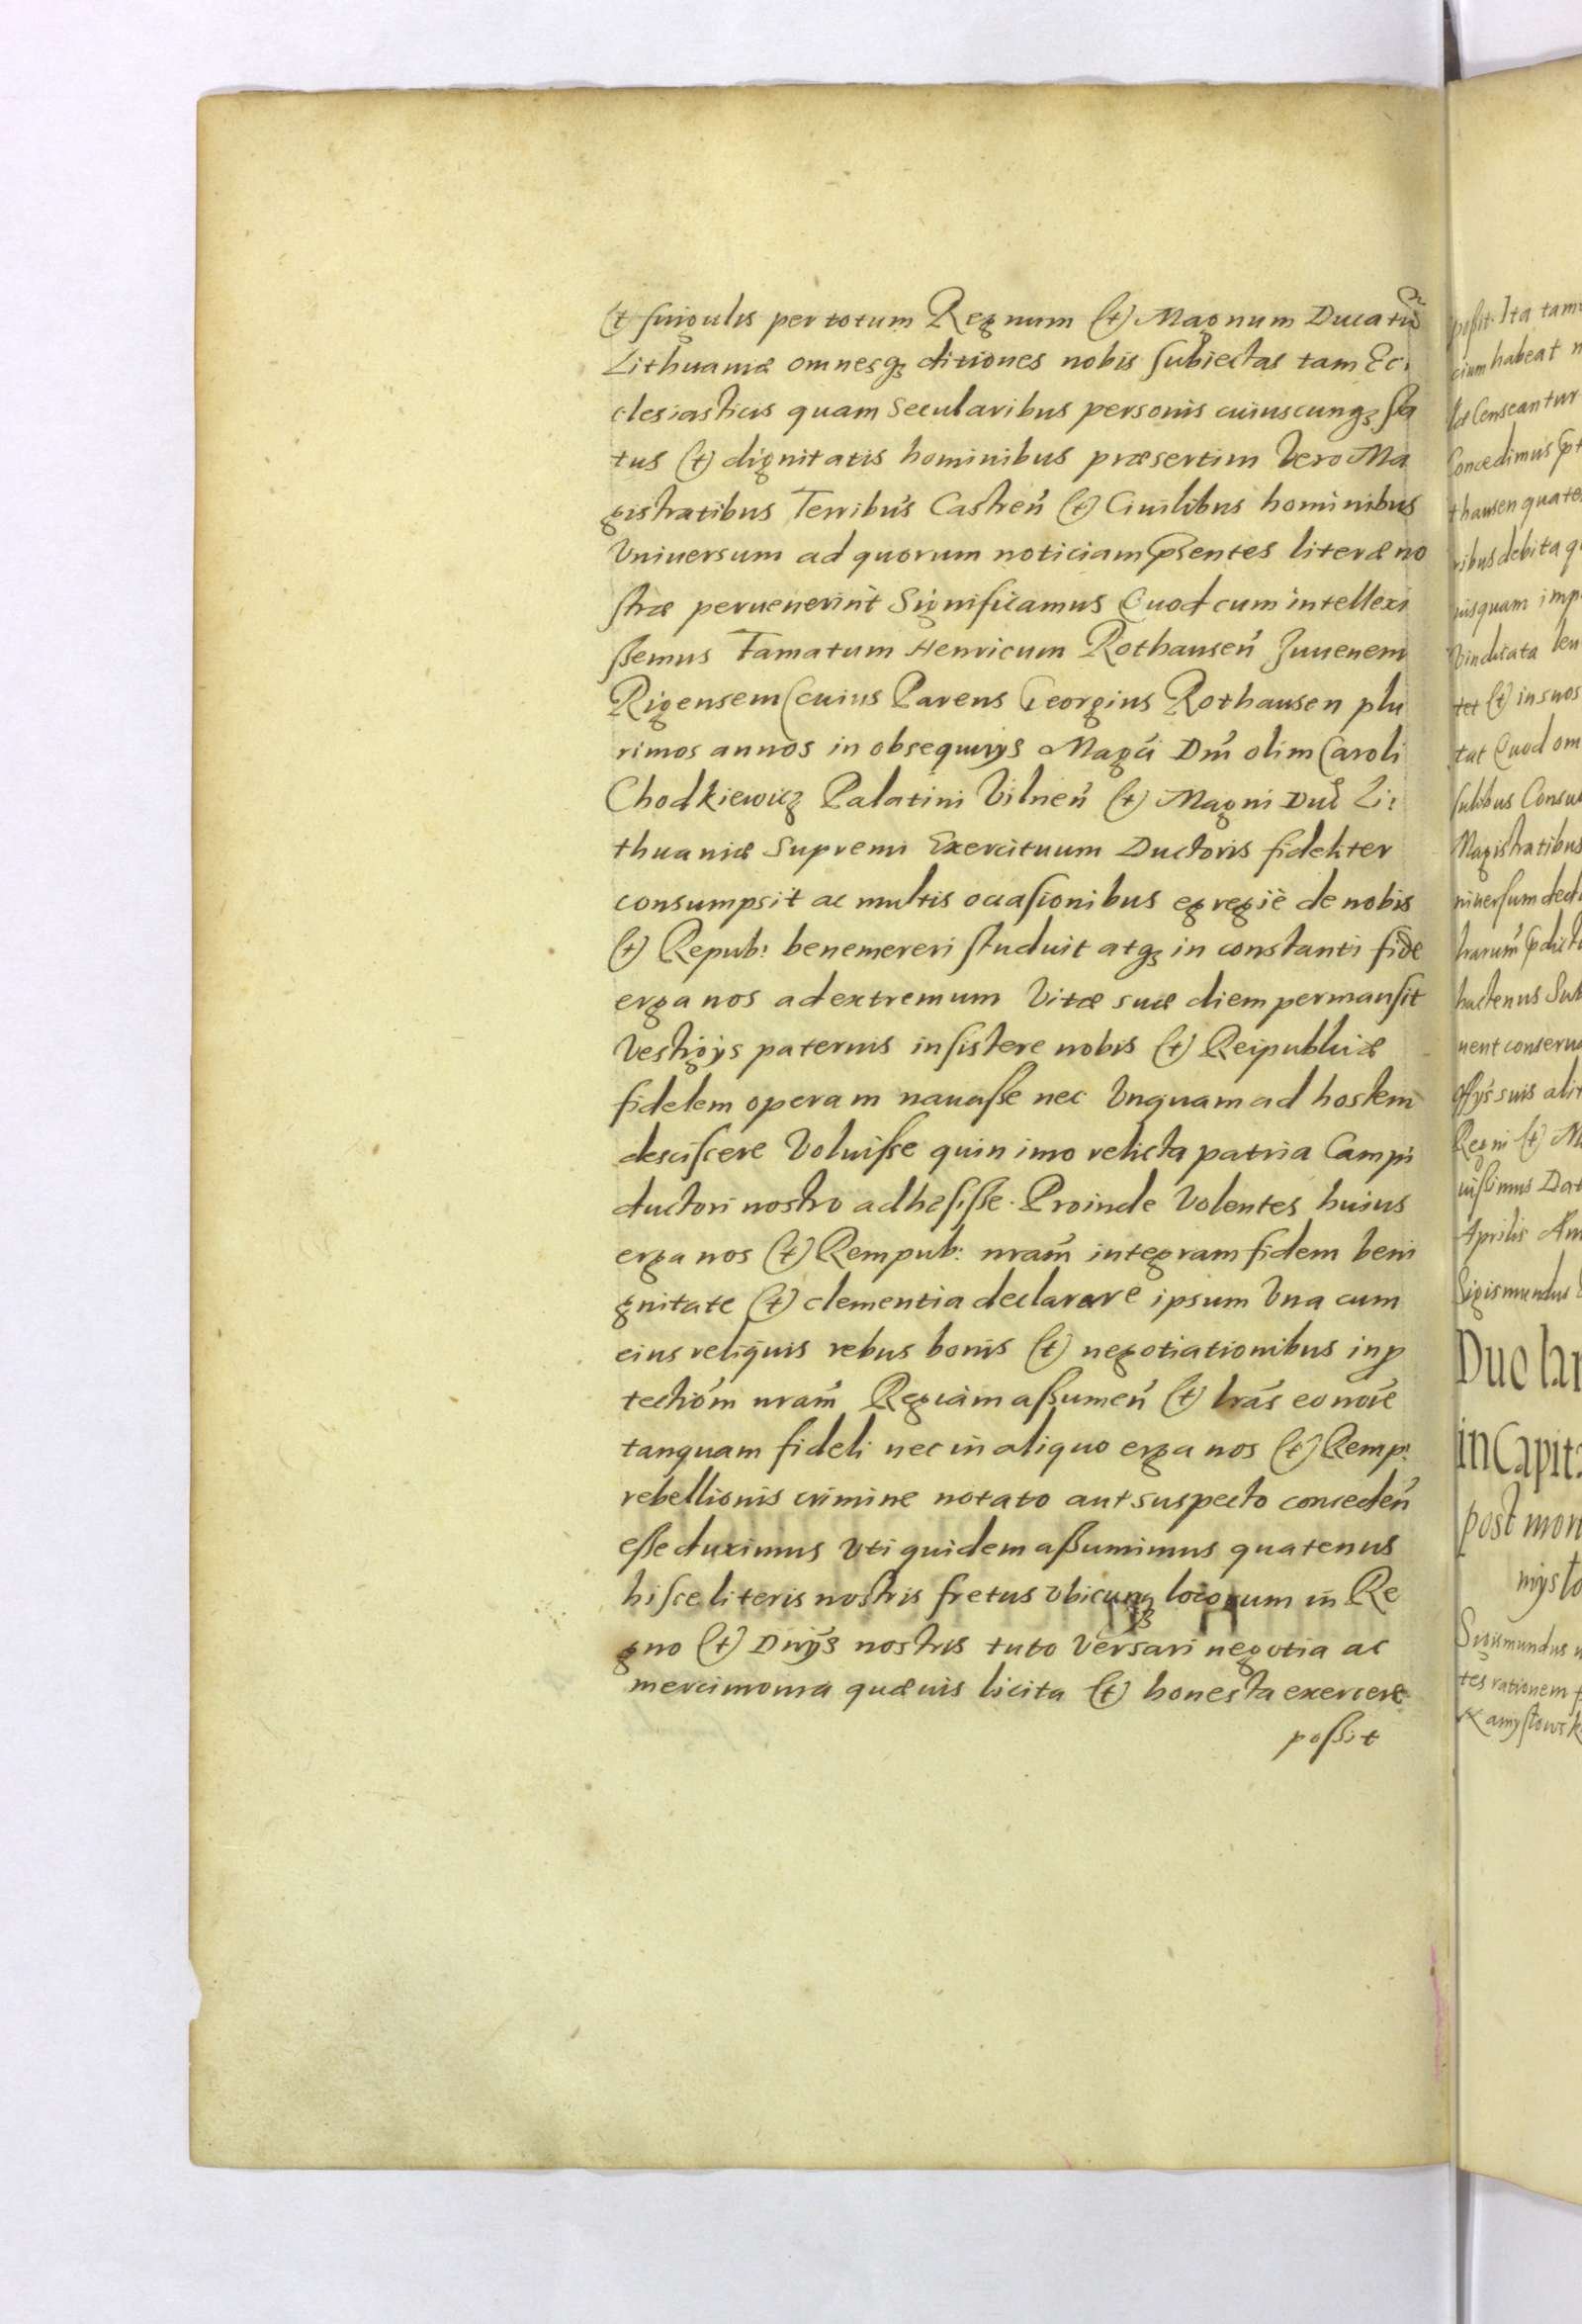 (et) singulis per totum Regnum (et) Magnum Ducatũ
Lithuaniæ omnesq₃ ditiones nobis subiectas tam Ec:
clesiasticis quam Secularibus personis cuiuscunq₃ sta
tus (et) dignitatis hominibus præsertim Vero Ma
gistratibus Terribus Castren̄ (et) Ciuilibus hominibus
Vniuersum ad quorum noticiam p̄sentes literæ no
stræ peruenerint Significamus Quod cum intellexi
ßemus Famatum Henricum Rothausen̄ Juuenem
Rigensem (cuius Parens Georgius Rothausen plu
rimos annos in obsequiys Magci Dni olim Caroli
Chodkiewicz Palatini Vilnen̄ (et) Magni Duc Li:
thuaniæ Supremi Exercituum Ductoris fideliter
consumpsit ac multis occasionibus egregiè de nobis
(et) Repub: benemereri studuit atq₃ in constanti fide
erga nos ad extremum Vitæ suæ diem permansit
Vestigys paternis insistere nobis (et) Reipublicæ
fidelem operam nauasse nec Vnquam ad hostem
desciscere Voluisse quin imo relicta patria Campi
ductori nostro adhesisse. Proinde Volentes huius
erga nos (et) Rempub: nram̄ integram fidem beni
gnitate (et) clementia declarare ipsum Vna cum
eius reliquis rebus bonis (et) negotiationibus in p
tectiom̄ nram̄ Regiam aßumen̄ (et) lras̄ eo noīe
tanquam fideli nec in aliquo erga nos (et) Remp:
rebellionis crimine notato aut suspecto conceden̄
esse duximus Vti quidem aßumimus quatenus
hisce literis nostris fretus Vbicunq₃ locorum in Re
gno (et) Dnys nostris tuto Versari negotia ac
mercimonia quæuis licita (et) honesta exercere
poßit
poßit. Ita tam
cium habeat n
Censeantur
Concedimus
thausen quate
ribus debita q
uisquam imp
Vindicata
tet (et) in suos
tat Quod om
sulibus Consu
Magistratibus
niuersum
hactenus Sub
uent conserua
offys suis
Regni (et) M
Dat
Aprilis An
Sigismundus
Duo
in Capit
post mon
Sigismundus
tes rationem